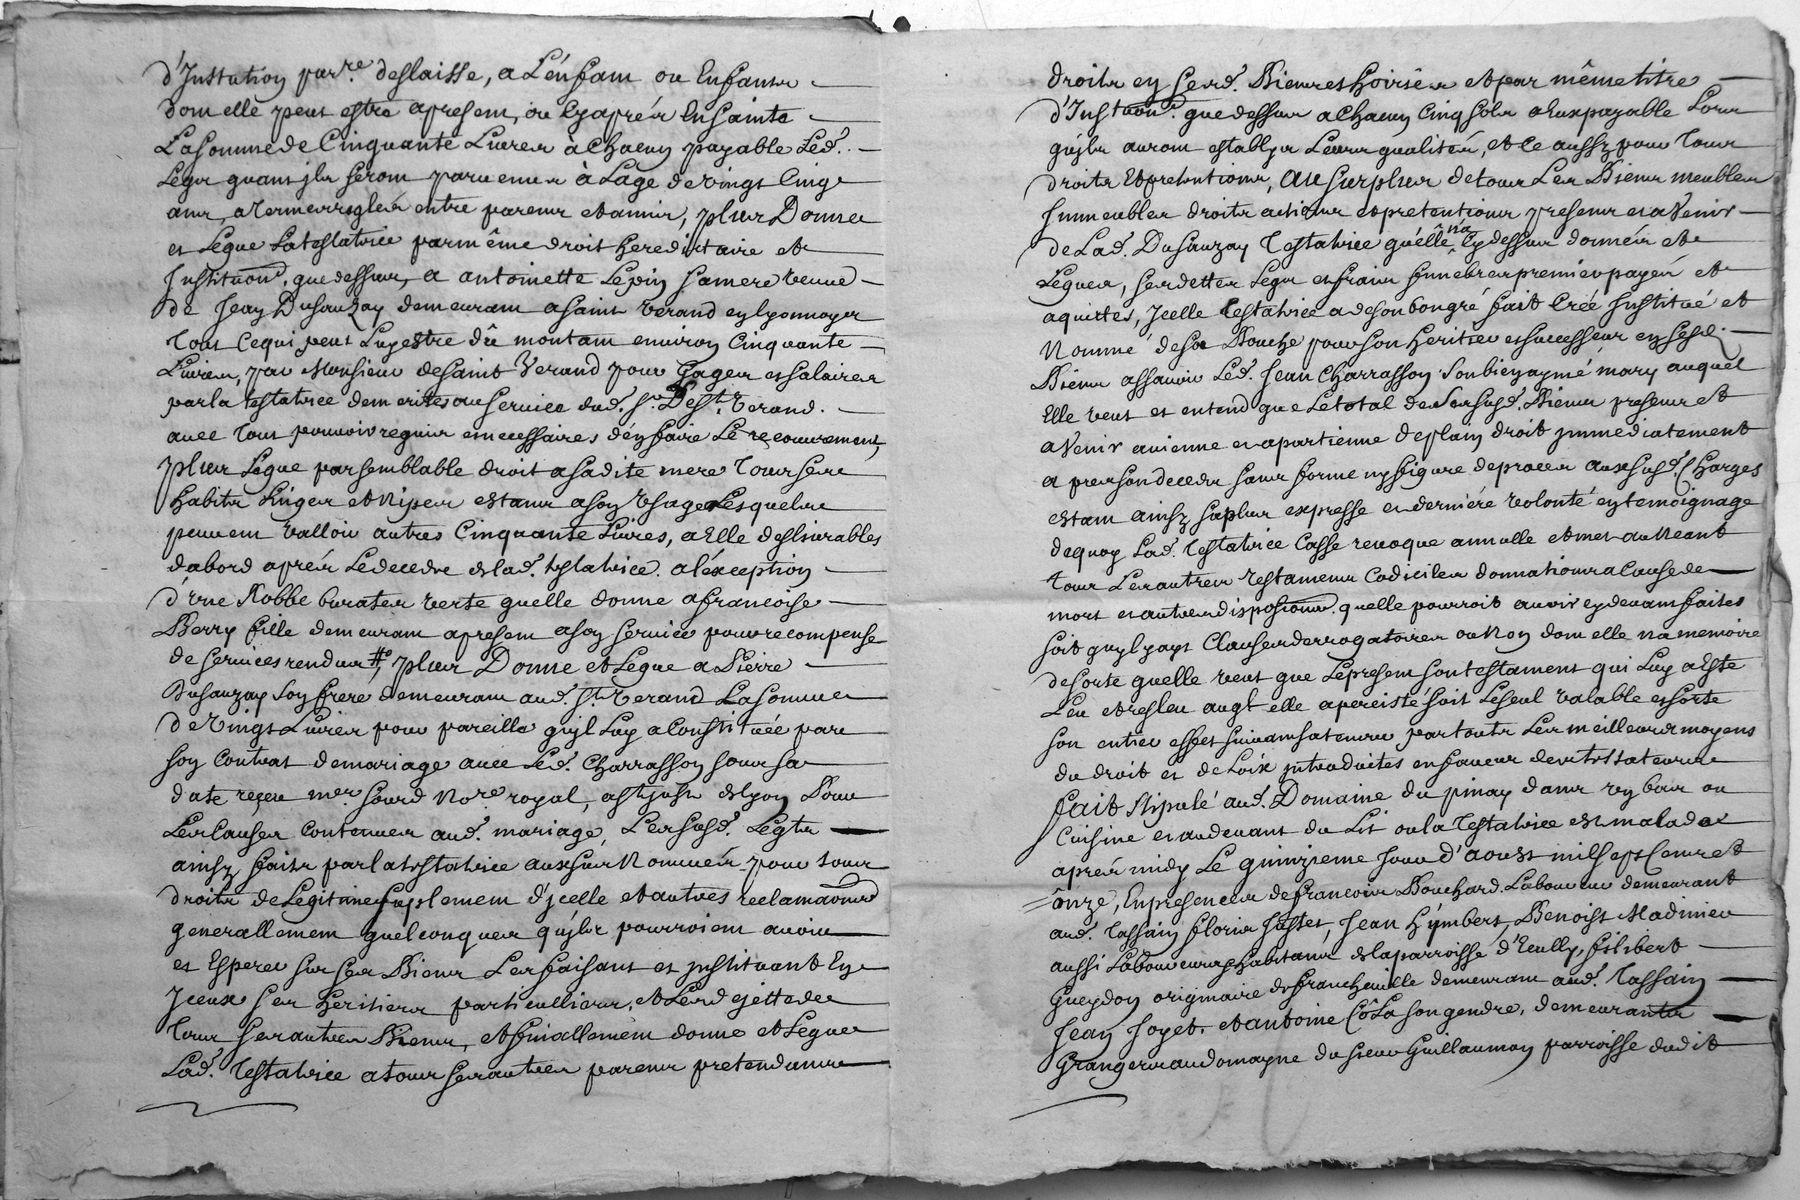 d'Instution par.re deslaisse, a L'enfam ou Enfanns
dom elle peut estre apresem, ou Cy apprés Ensainte
La somme de Cinquante Livres a Chacun payable Led.
Legs quant jls serom parvenus à L'age de vingt Cinq
ans, a termes reglés entre parens et amis, plus Donne
et Legue La testatrice par même droit hereditaire et
Institution. que dessus, a antoinette Lepin sa mere veuve
de Jean Dusauzay demeuram a saint verand en lyonnoys
Tout Ce qui peut Luy estre dû montam environ Cinquante
Livres, par Monsieur de saint Verand pour gages et salaires
par la testatrice demerités au service dud. sr. De st. verand.
avec Tout pouvoir requis et necessaires d'en faire Le recouvrement,
plus Legue par semblable droit a sa dite mere Tous ses
habits Linges et Nipes estans a son usage Lesquels
peuvem valloir autres Cinquante Livres, a Elle deslivrables
d'abord aprés Le decedre de lad. testatrice. a l'exception
d'une Robbe burates verte quelle donne a francoise
Berry fille demeuram apresem a son service pour recompense
de services rendus #, plus Donne et Legue a Pierre
Dusauzay son frere demeuram aud. st. verand La somme
de vingt Livres pour pareille qu'jl Luy a Constituée par
son Contrat de mariage avec Led. Charrasson sous sa
date reçeu mer. sourd Nore. royal, a st. just de Lyon Pour
Les Causes Contenues aud. mariage, Les susd. Legts
ainsy faits par la testatrice aux sus Nommés pour tous
droits de Legitime suplement d'jcelle et autres reclamations
generallemem quelconques qu'jls pourroient avoir
et Esperer sur ses Biens Les faisant et jnstituant En
Jceux ses heritiers particulliers, et Les dejette de
Tous ses autres Biens, et finallement donne et Legue
Lad. Testatrice a tous ses autres parens pretendans
droits en sesd. Biens et hoiries et par même titre
d'Instuon. que dessus a Chacun Cinq sols a Eux payable Lors
qu'jls aurom establys Leurs qualités, et Ce aussy pour Tous
droits Et pretentions, au surplus de tous Les Biens meubles
Jmmeubles droits actions et pretentions presens et a venir
de Lad. Dusauzay Testatrice qu'elle na Cy dessus donnés et
Legués, ses dettes Legs et frais funebres premier payés et
aquittes, Jcelle testatrice a de son bon gré fait Créé Institué et
Nommé de sa Bouche pour son heritier et successeur en sesd.
Biens assavoir Led. Jean Charrasson son bien aymé mary auquel
Elle veut et entend que Le total de ses susd. Biens presens et
a Venir avienne et apartienne de plain droit jmmediatement
apres son decedz sans forme ny figure de proces aux susd. Charges
estam ainsy sa plus expresse et derniére volonté en temoignage
dequoy Lad. Testatrice Casse revoque annulle et met au Neant
tous Les autres Testamens Codiciles donnations a Cause de
mort et autres dispositions. quelle pourroit avoir cy devam faites
soit qu'jl y ays Clauses derrogatoires ou Non dom elle n'a memoire
de sorte quelle veut que Le presem son testament qui Luy a Esté
Leu et resleu auql elle a percisté soit Le seul valable et sorte
son entier effet suivam sa teneur par touts Les meilleurs moyens
du droit et de Loix jntroduites en faveur des testateurs
fait stipulé aud. Domaine du pinay dans un bas ou
Cuisine et au devant du Lit ou la Testatrice est malade
aprés midy Le quinzieme Jour d'aoust mil sept Cent et
onze, En presence de francois Bouchard Laboureur demeurant
aud. Tassin floris fostet, Jean hymbert, Benoist Madinier
aussi Laboureurs habitans de la parroisse d'Ecully, filibert
Gueydon originaire de francheville demeuram aud. Tassin
Jean Joyet, et antoine Côla son gendre, demeurants
Grangers au domayne du sieur Guillaumon parroisse dudit